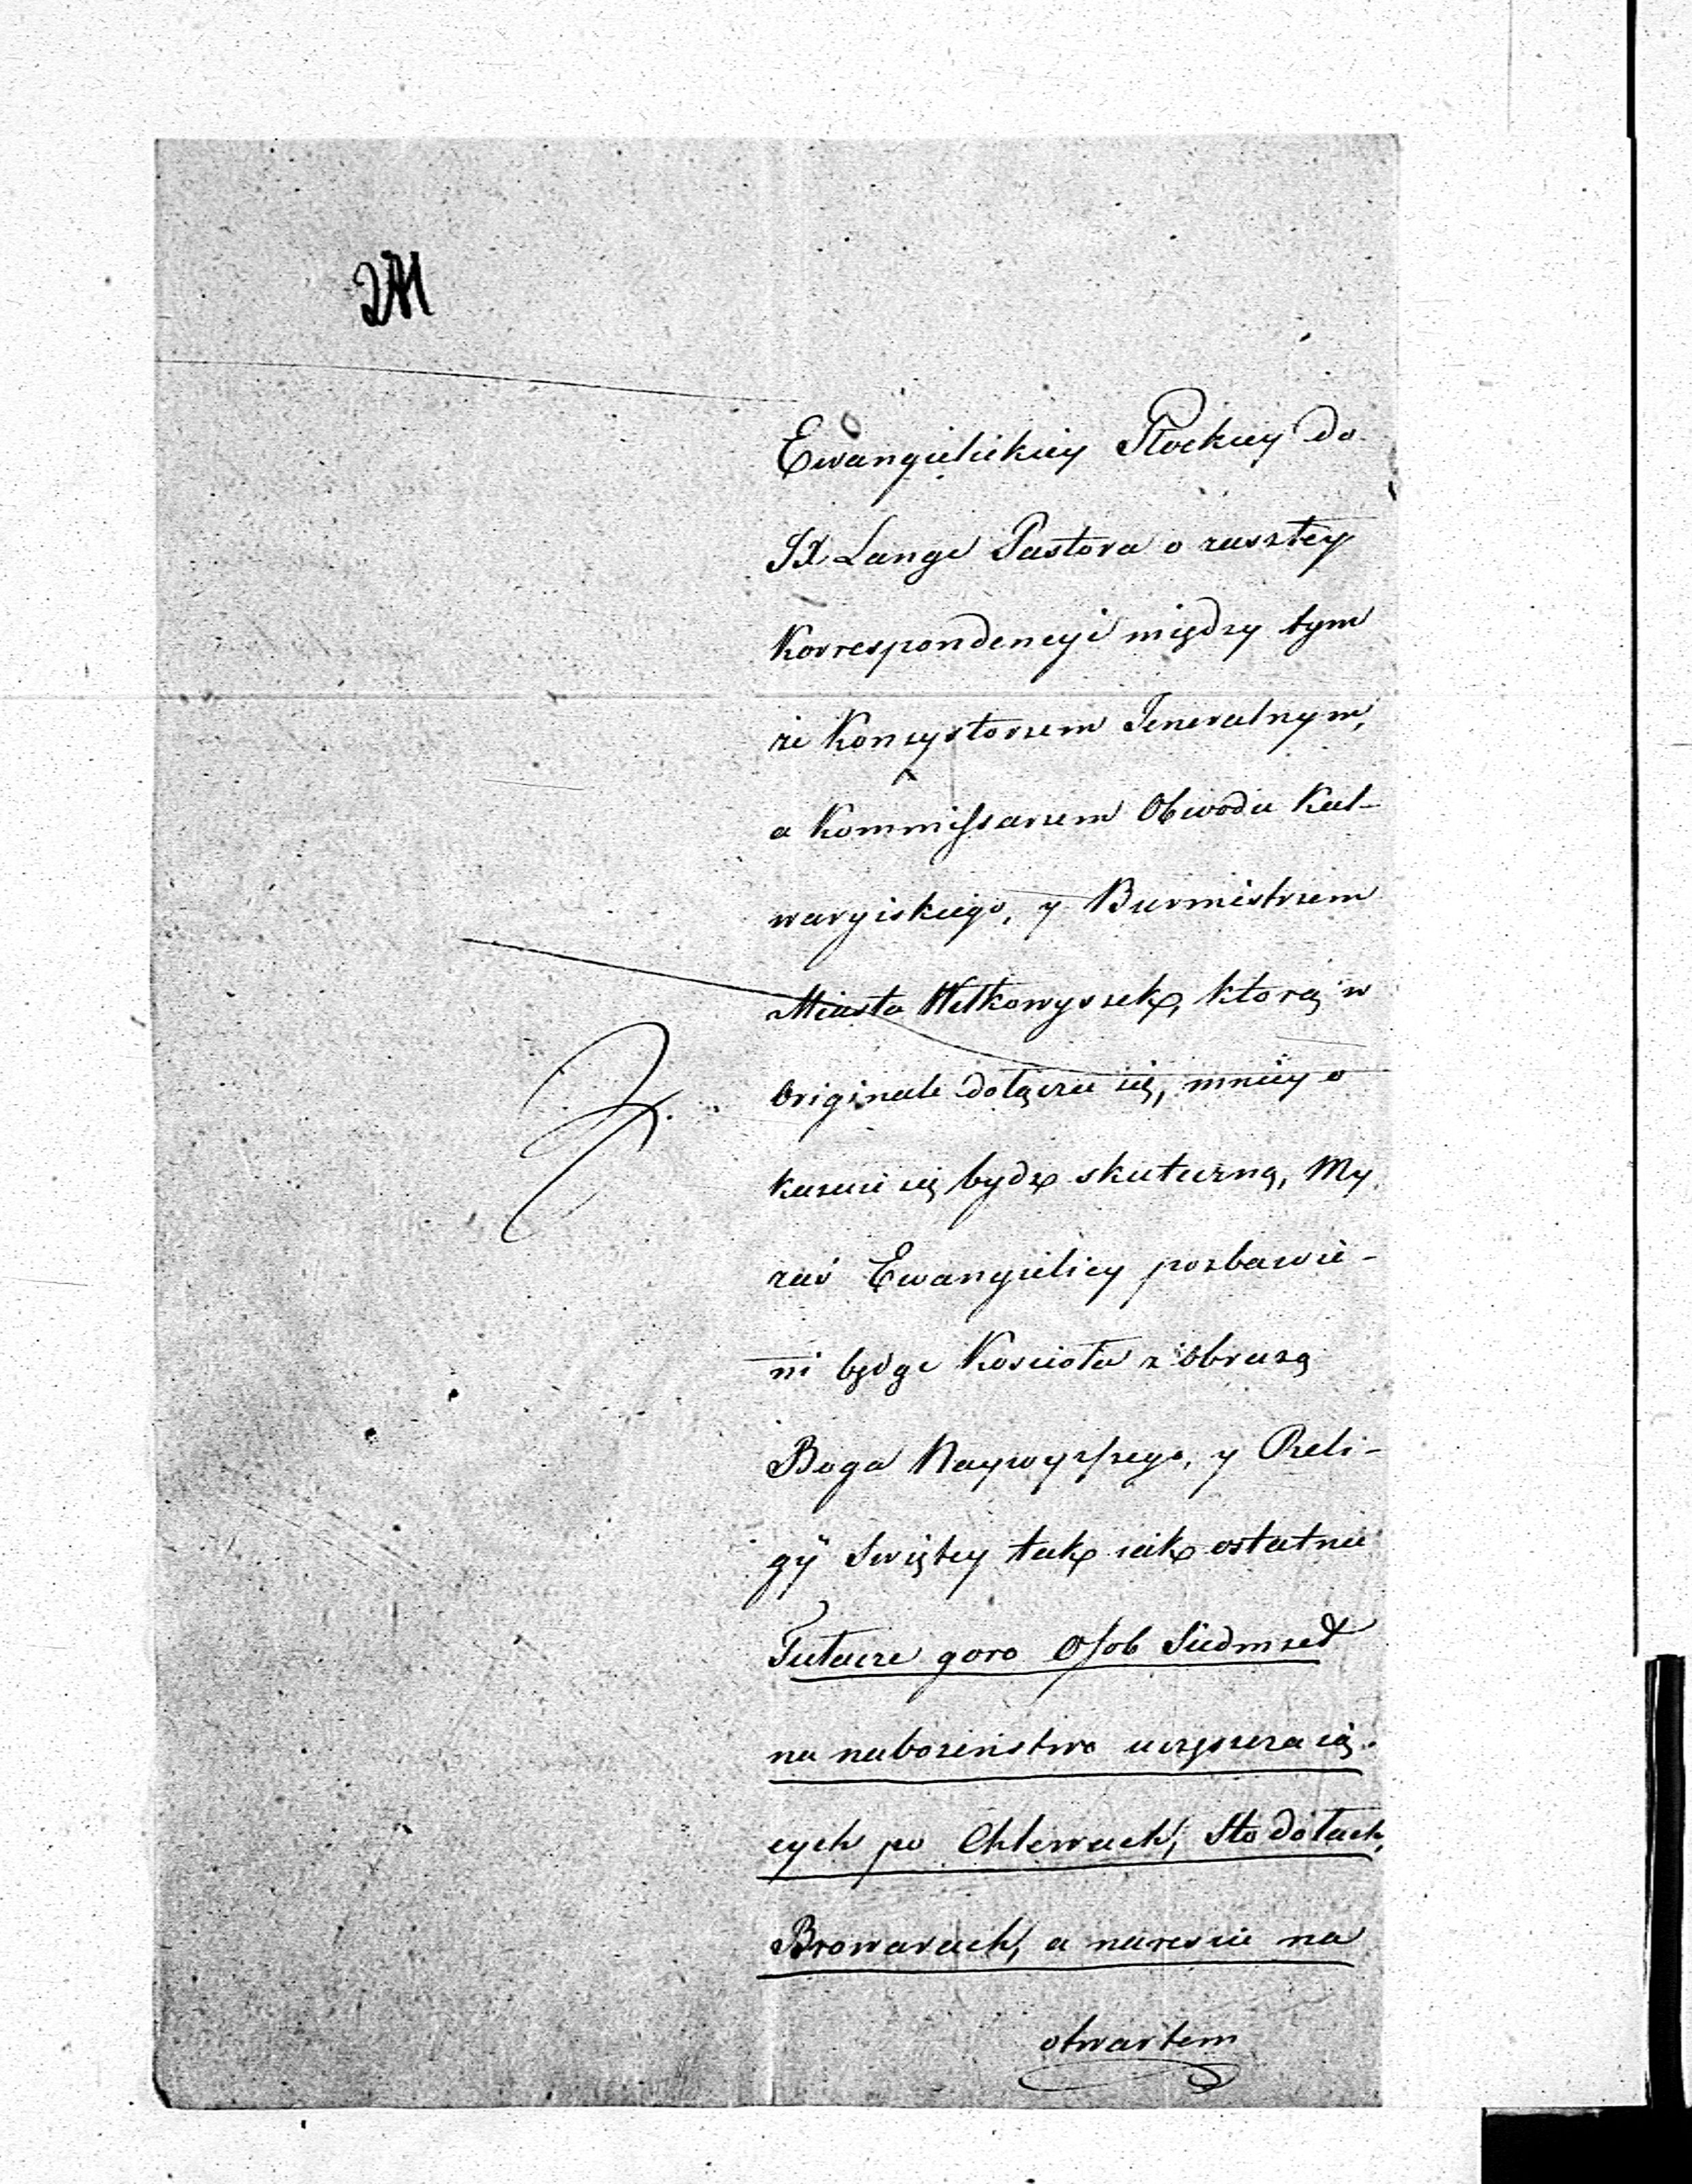 Ewangielickiey Płockiey do
JX Lange Pastora o zaszłey
Korrespondencyi między tym
że Konsystorzem Jeneralnym,
a Kommissarzem Obwodu Kal-
waryiskiego, y Burmistrzem
Miasta Wilkowyszek, ktorą w
Originale dołącza się, mniey o
kazuie się bydz skuteczną, My
zaś Ewangielicy pozbawie-
ni będąc Kościoła z Obrazą
Boga Naywyższego, y Reli-
gÿ Swiętey tak iak ostatnie
Tułacze goro Osob Siedmset
na nabożeństwo uczęszczaią-
cych po Chlewach, Stodołach,
Browarach, a nareście na
otwartem